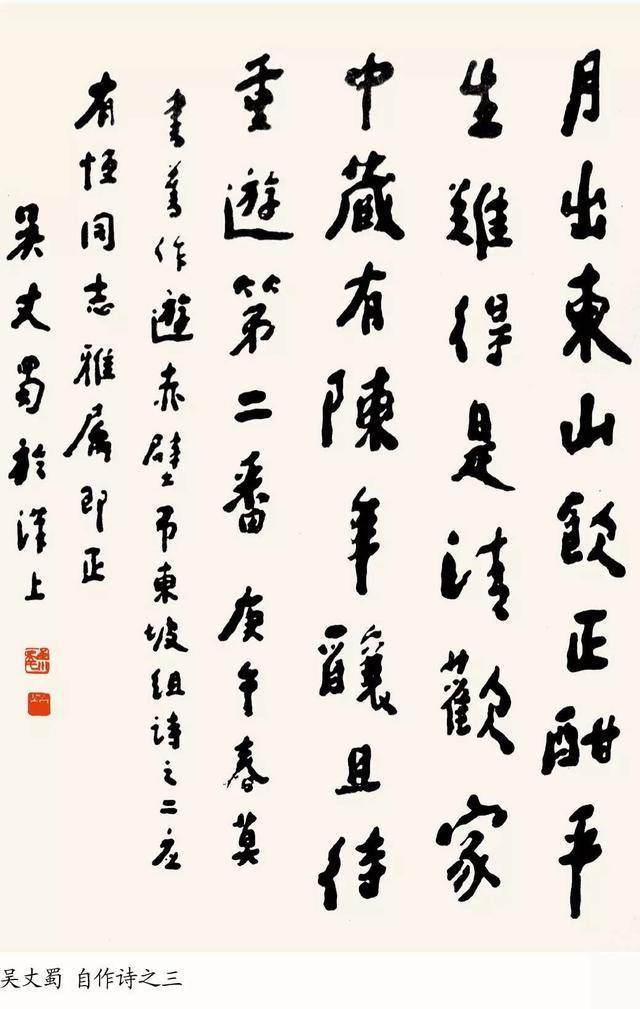 月出東山飲正酣平
生難得是清歡家
中藏有陳年釀且待
重遊第二番 庚午春莫
書舊作遊赤壁吊東坡組詩之二应
有恒同志雅属即正
吴丈蜀於漢上
吴丈蜀 自作诗之三